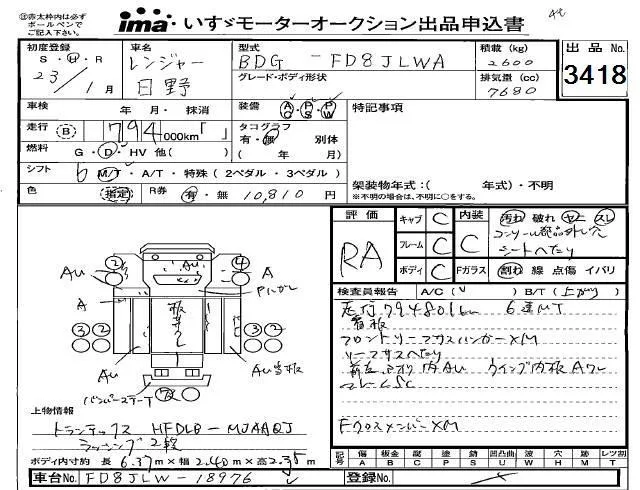 ㊟赤太枠内は必ず
ボールペンで
ご記入下さい。
ima いすゞモーターオークション出品申込書
初度登録
S・H・R
23年1月
車名
レンジャー
日野
型式
BDG-FD8JLWA
グレード・ボディ形状
積載 (kg)
2600
排気量 (cc)
7680
出品No.
3418
車検 年・月・抹消
装備 A/C P/S P/W
特記事項
走行 B 794,000km「 」
タコグラフ
有・無 別体
( 年 月)
燃料 G・D・HV 他( )
シフト 6 M/T・A/T・特殊 (2ペダル・3ペダル)
架装物年式:( 年式)・不明
※不明の場合は、不明に○をする。
色 指定 R券 有・無 10,810円
評価
RA
キャブ C
フレーム C
ボディ C
内装 C
Fガラス
汚れ 破れ ヤニ スレ
コンソール部品外し穴
シートへたり
割れ 線 点傷 イバリ
検査員報告 A/C( ) B/T(上がり)
走行794801km 6速MT
看板
フロントリーフサスハンガーXM
リーフサスへたり
Fクロスメンバー XM
② ④
AU A
AU
A
③② ③②
AU
バンパーステーA
上物情報
トランテックス HFDLB-MJAAQJ
ラッシング2段
ボディ内寸約 長 6.37m×幅 2.40m×高 2.35m
車台No. FD8JLW-18976
登録No.
記号 傷A 板金B 腐C 塗P 錆S 凹凸曲U 波W 穴H 跡M ワレ・ツブレT